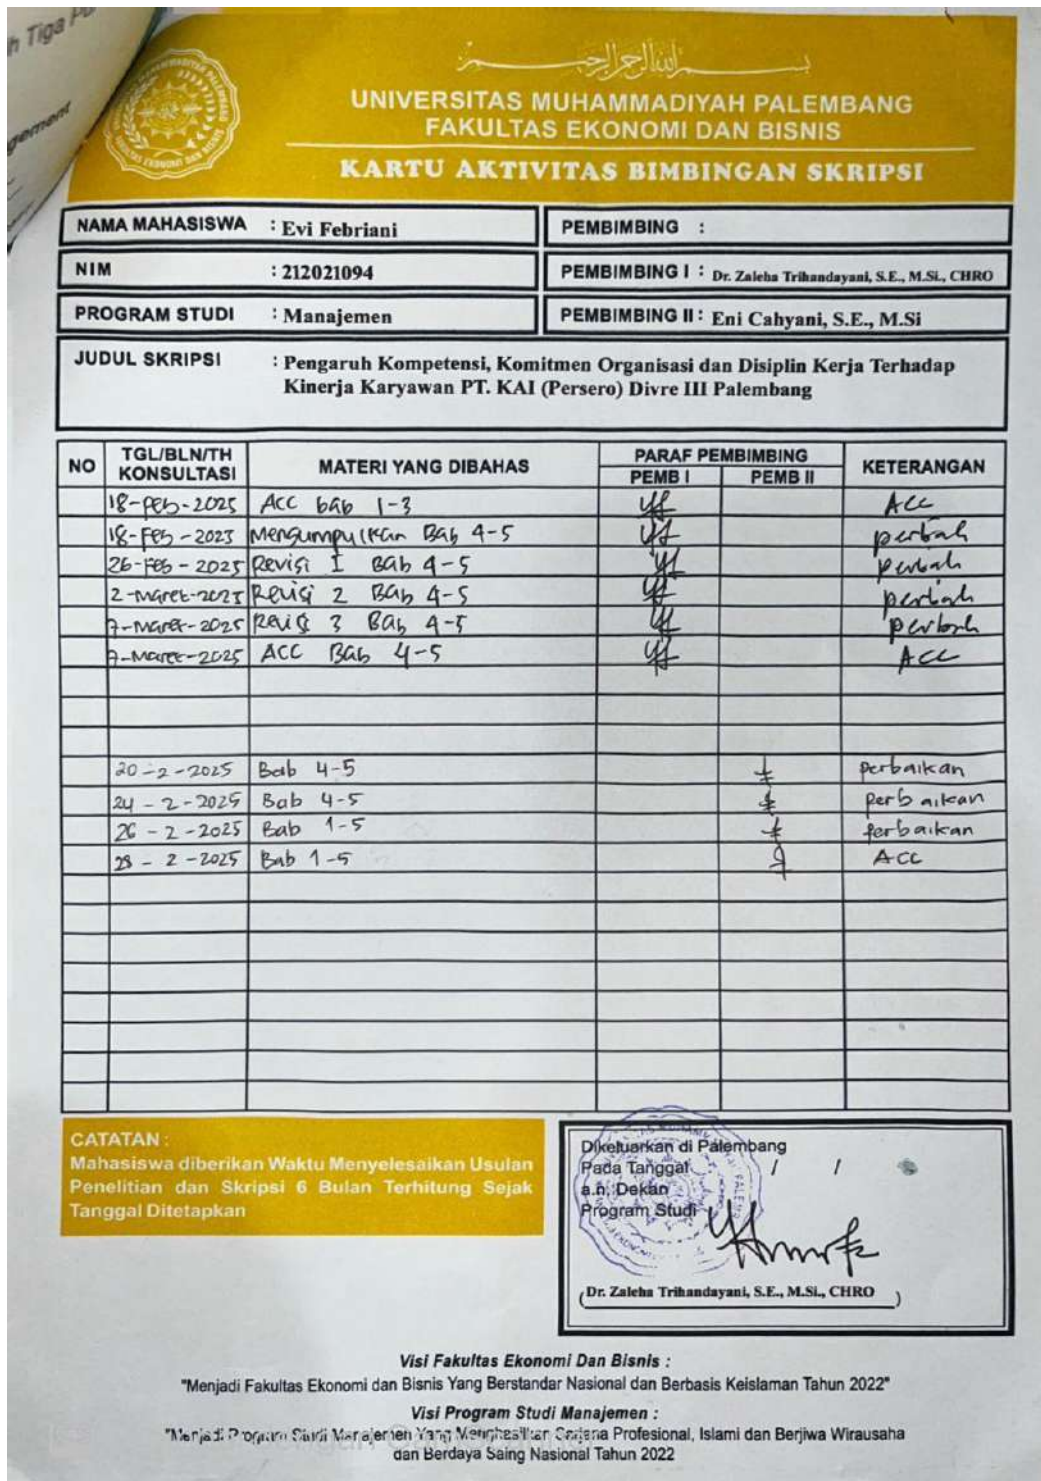 h Tiga
gement
بسم الله الرحمن الرحيم
UNIVERSITAS MUHAMMADIYAH PALEMBANG
FAKULTAS EKONOMI DAN BISNIS
KARTU AKTIVITAS BIMBINGAN SKRIPSI
NAMA MAHASISWA : Evi Febriani PEMBIMBING :
NIM : 212021094 PEMBIMBING I : Dr. Zaleha Trihandayani, S.E., M.Si., CHRO
PROGRAM STUDI : Manajemen PEMBIMBING II : Eni Cahyani, S.E., M.Si
JUDUL SKRIPSI : Pengaruh Kompetensi, Komitmen Organisasi dan Disiplin Kerja Terhadap
Kinerja Karyawan PT. KAI (Persero) Divre III Palembang
NO TGL/BLN/TH KONSULTASI MATERI YANG DIBAHAS PARAF PEMBIMBING PEMB I PEMB II KETERANGAN
18-Feb-2025 ACC bab 1-3 ACC
18-Feb-2025 Mengumpulkan Bab 4-5
26-Feb-2025 Revisi I Bab 4-5
2-Maret-2025 Revisi 2 Bab 4-5
7-Maret-2025 Revisi 3 Bab 4-5
7-Maret-2025 ACC Bab 4-5 ACC
20-2-2025 Bab 4-5 perbaikan
24-2-2025 Bab 4-5 perbaikan
26-2-2025 Bab 1-5 perbaikan
28-2-2025 Bab 1-5 ACC
CATATAN :
Mahasiswa diberikan Waktu Menyelesaikan Usulan
Penelitian dan Skripsi 6 Bulan Terhitung Sejak
Tanggal Ditetapkan
Dikeluarkan di Palembang
Pada Tanggal / /
a.n. Dekan
Program Studi
(Dr. Zaleha Trihandayani, S.E., M.Si., CHRO)
Visi Fakultas Ekonomi Dan Bisnis :
"Menjadi Fakultas Ekonomi dan Bisnis Yang Berstandar Nasional dan Berbasis Keislaman Tahun 2022"
Visi Program Studi Manajemen :
"Menjadi Program Studi Manajemen Yang Menghasilkan Sarjana Profesional, Islami dan Berjiwa Wirausaha
dan Berdaya Saing Nasional Tahun 2022